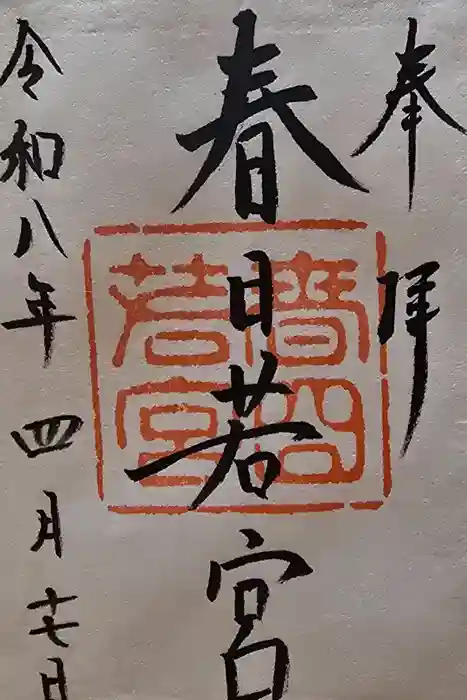 奉拝
春日若宮
春日
若宮
令和八年四月十七日